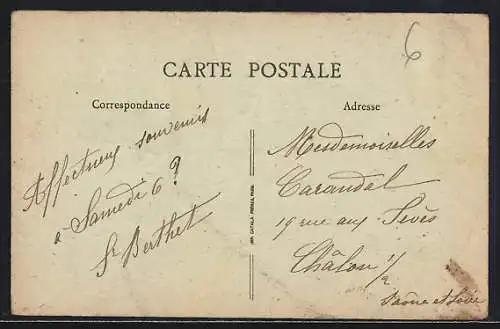 6
CARTE POSTALE
Correspondance
Adresse
Affectueux souvenirs
a Samedi 6 ?
Berthet
Mesdemoiselles
Carandal
19 rue aux Fèves
Châlon s/s
Saône et Loire